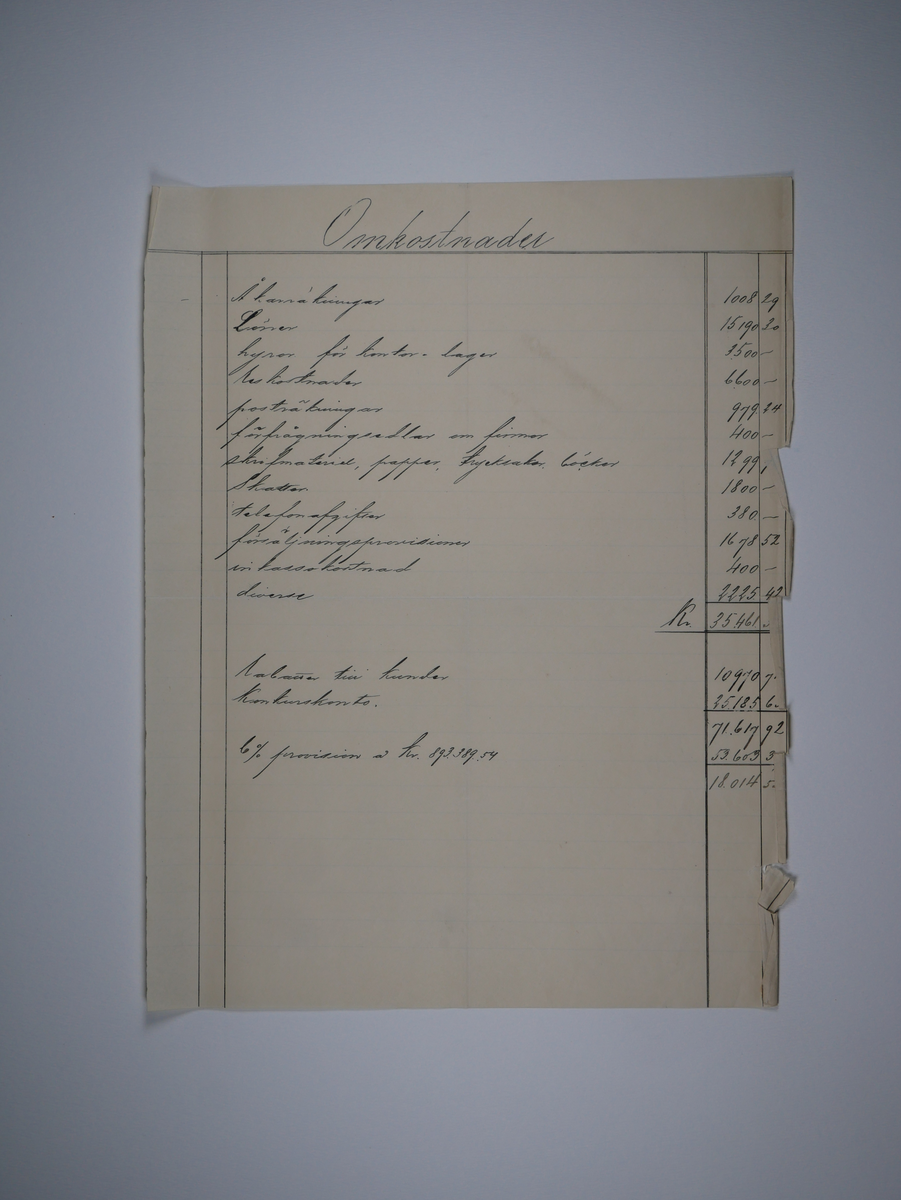 Omkostnader
Åkarräkningar 1008 29
Löner 15190 30
hyror för kontor o lager 3500 –
Reskostnader 6600 –
posträkningar 979.24
förfrågningsedlar om firmor 400 –
skrifmateriel, papper, trycksaker, böcker 1299
Skatter 1800 –
telefonafgifter 380 –
försäljningsprovisioner 1678 52
inkassokostnad 400 –
diverse 2225 42
Kr. 35.461
Rabatter till kunder 10970 7
Konkurskonto. 25.185 6
71.617 92
6% provision a Kr. 893.389.54 53.603 3
18.014 5